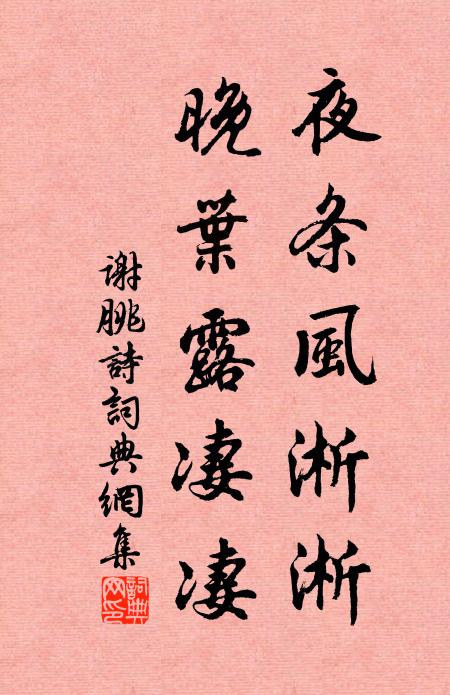 夜条風淅淅
晚葉露淒淒
谢朓詩詞典網集
詞典網印